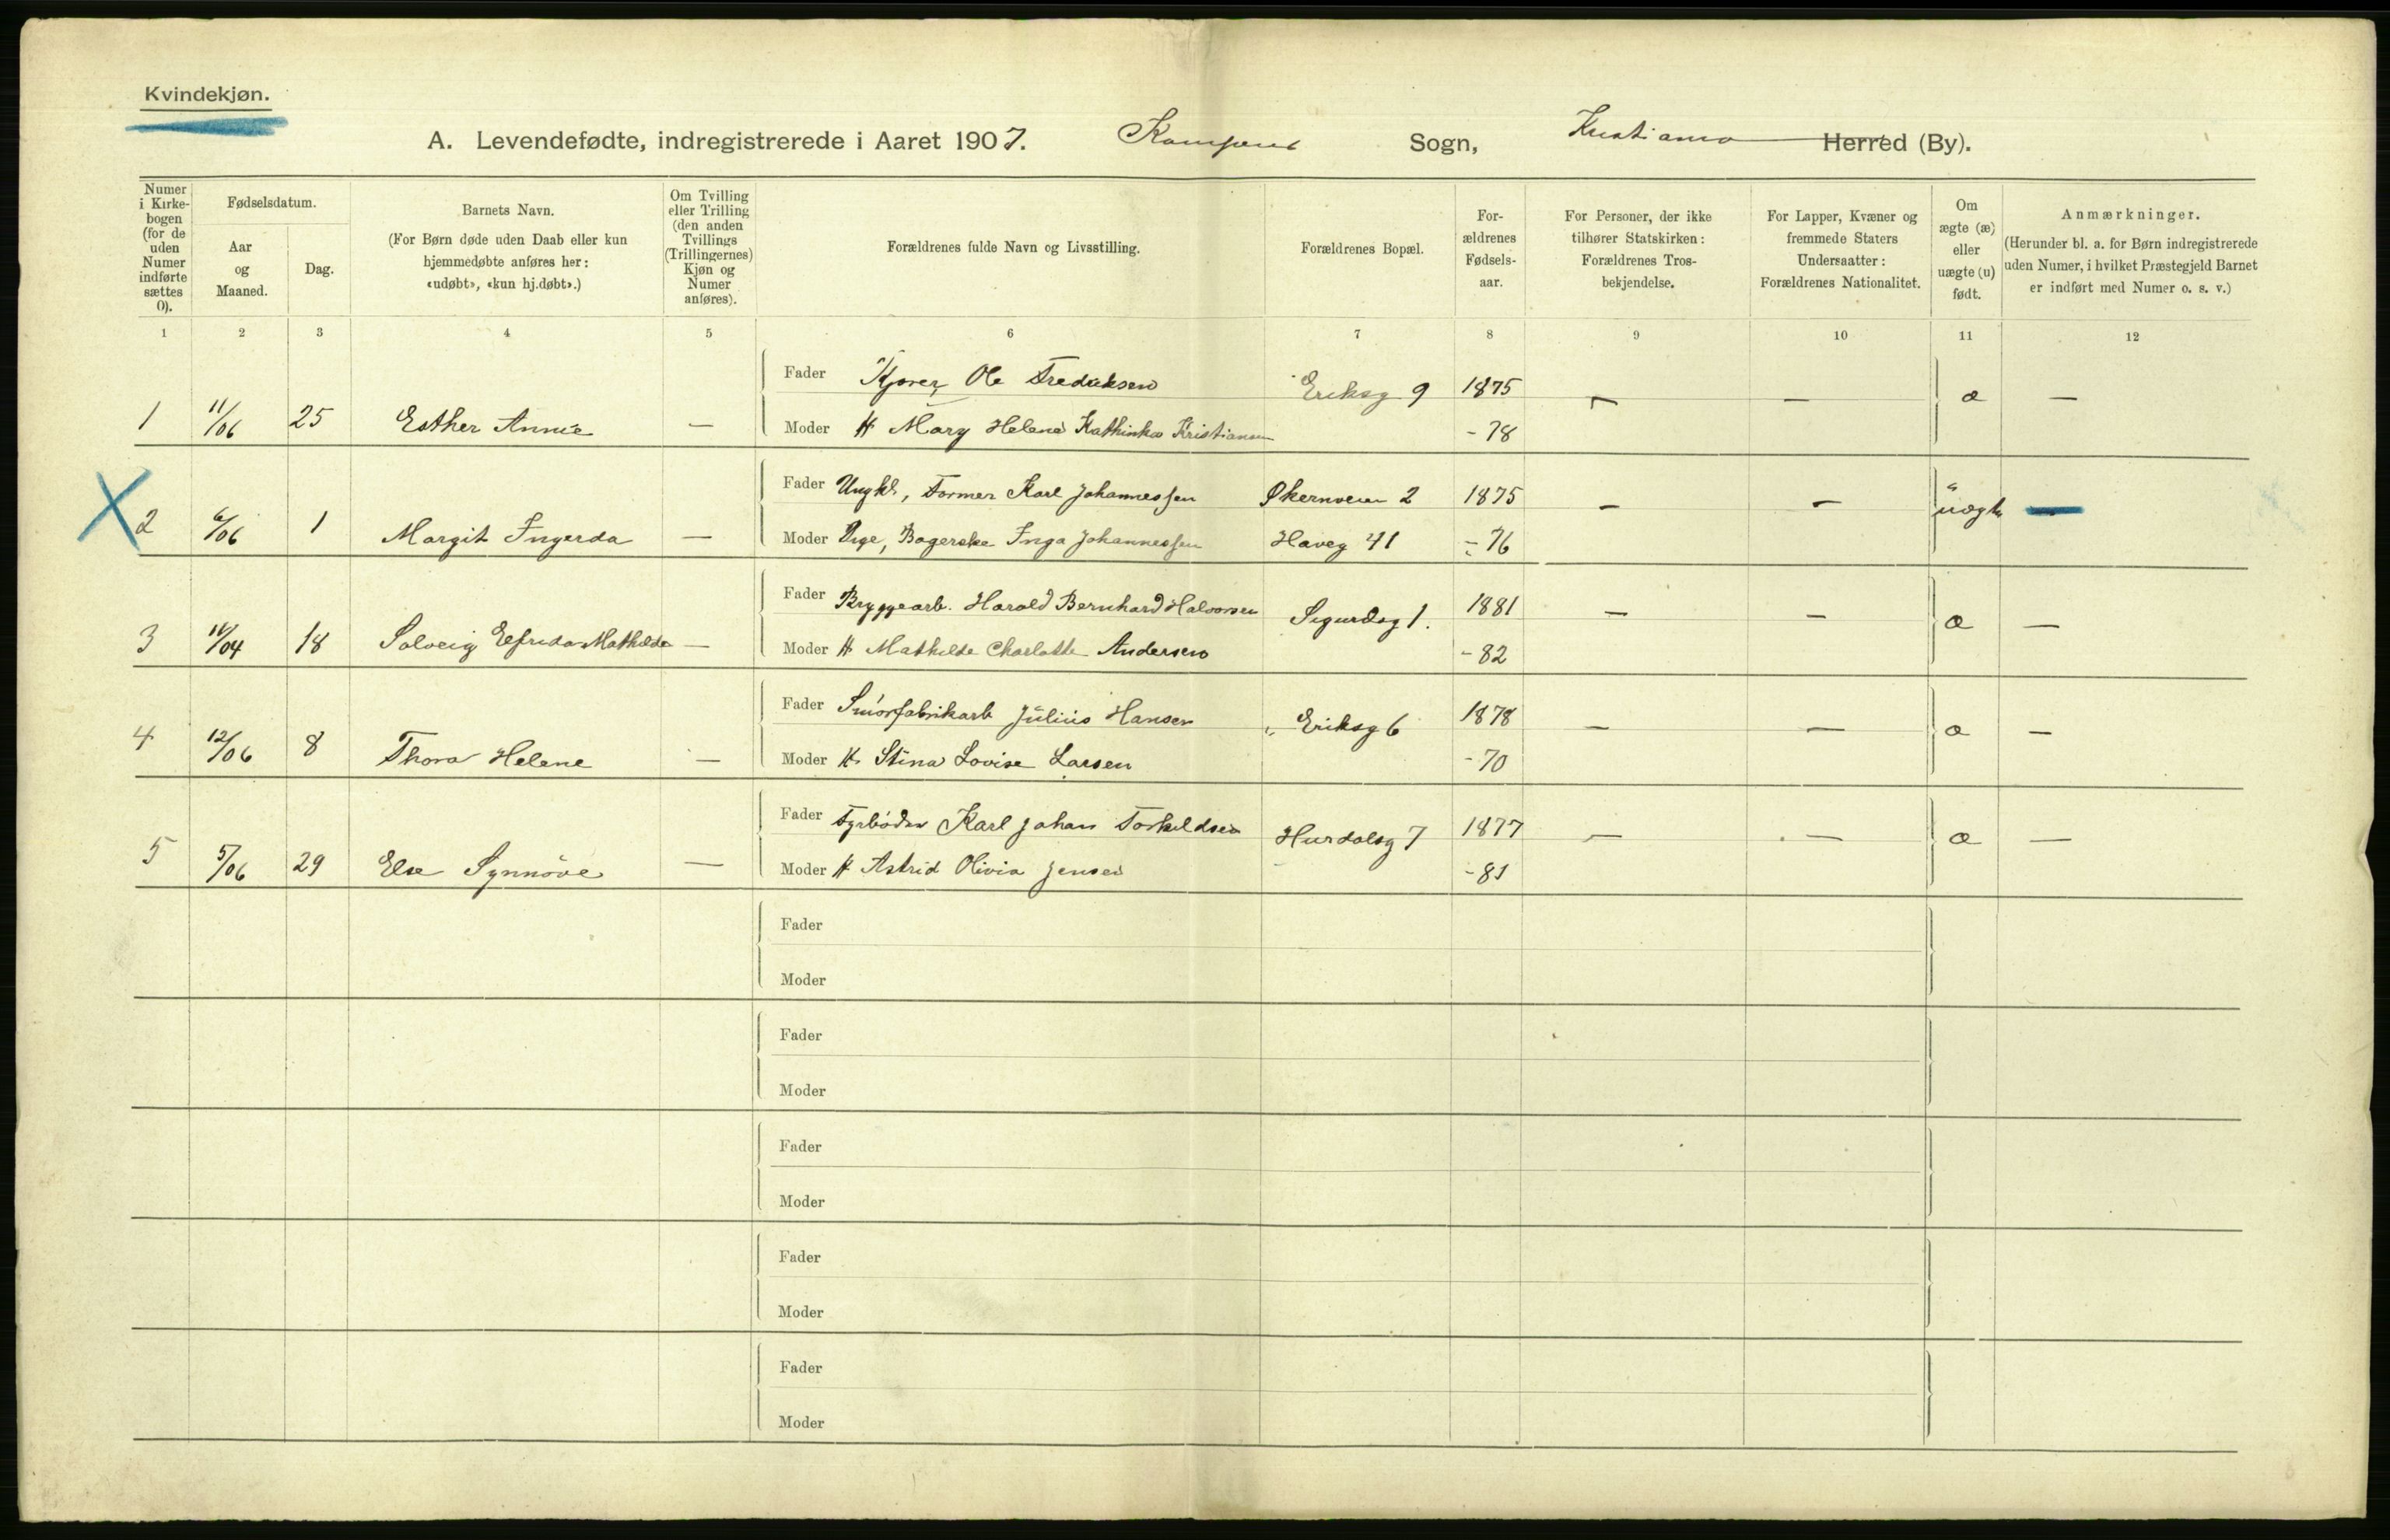 Kvindekjøn.
A. Levendefødte, indregistrerede i Aaret 1907. Kampens Sogn, Kristiania Herred (By).
Numer i Kirke-bogen (for de uden Numer indførte sættes 0).
Fødselsdatum.
Aar og Maaned.
Dag.
Barnets Navn.
(For Børn døde uden Daab eller kun
hjemmedøbte anføres her:
«udøbt», «kun hj.døbt».)
Om Tvilling
eller Trilling
(den anden
Tvillings
(Trillingernes)
Kjøn og
Numer
anføres).
Forældrenes fulde Navn og Livsstilling.
Forældrenes Bopæl.
For-
ældrenes
Fødsels-
aar.
For Personer, der ikke
tilhører Statskirken:
Forældrenes Tros-
bekjendelse.
For Lapper, Kvæner og
fremmede Staters
Undersaatter:
Forældrenes Nationalitet.
Om
ægte (æ)
eller
uægte (u)
født.
Anmærkninger.
(Herunder bl. a. for Børn indregistrerede
uden Numer, i hvilket Præstegjeld Barnet
er indført med Numer o. s. v.)
1 2 3 4 5 6 7 8 9 10 11 12
Fader Kjører Ole Fredriksen Eriksg 9 1875 — — æ —
1 11/06 25 Esther Annie — Moder H Mary Helene Kathinka Kristiansen - 78
Fader Ungk., Former Karl Johannessen Økernveien 2 1875 — — uægte —
2 6/06 1 Margit Ingerda — Moder Pige, Bagerske Inga Johannessen Haveg 41 - 76
Fader Bryggearb. Harald Bernhard Halvorsen Sigurdsg 1. 1881 — — æ —
3 11/04 18 Solveig Elfrida Mathilde — Moder H Mathilde Charlotte Andersen - 82
Fader Smörfabrikarb Julius Hansen Eriksg 6 1878 — — æ —
4 12/06 8 Thora Helene — Moder H Stina Lovise Larsen - 70
Fader Fyrbøder Karl Johan Torkildsen Hurdalsg 7 1877 — — æ —
5 5/06 29 Else Synnöve — Moder H Astrid Olivia Jensen - 81
Fader
Moder
Fader
Moder
Fader
Moder
Fader
Moder
Fader
Moder